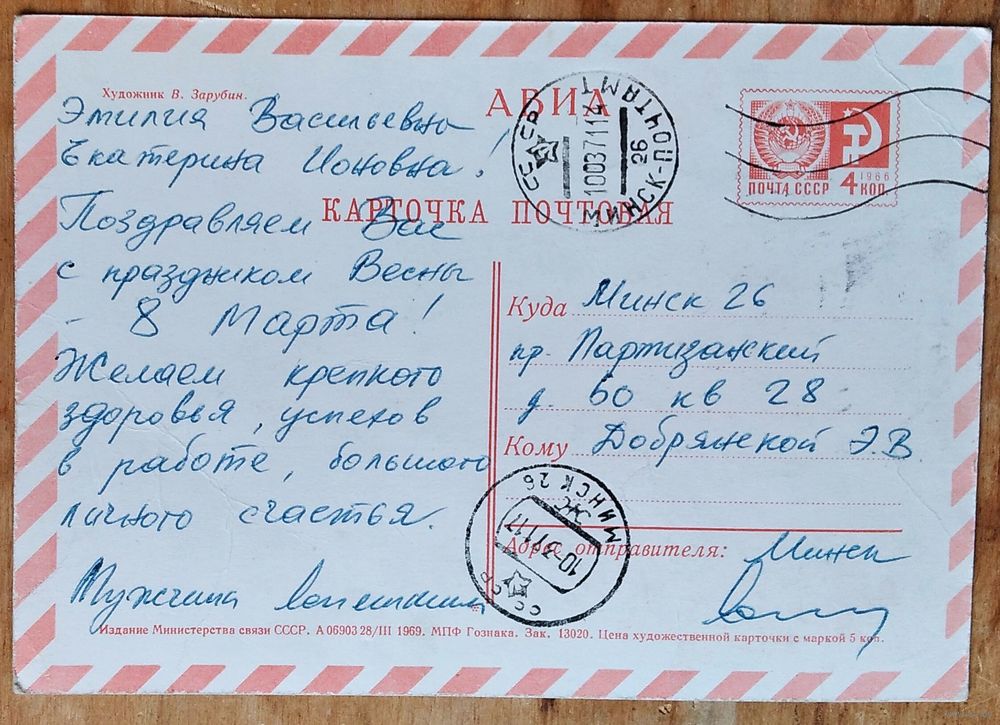 Художник В. Зарубин.
АВИА
КАРТОЧКА ПОЧТОВАЯ
СССР
100371 14
МИНСК-ПОЧТАМТ
26
1966
ПОЧТА СССР 4 КОП.
Эмилия Васильевна
Екатерина Ионовна!
Поздравляем Вас
с праздником Весны
- 8 Марта!
Желаем крепкого
здоровья, успехов
в работе, большого
личного счастья.
Мужчина
Куда Минск 26
пр. Партизанский
д. 60 кв 28
Кому Добрянской Э.В
МИНСК 26
10-3 71 17
СССР
Адрес отправителя: Минск
Издание Министерства связи СССР. А 06903 28/III 1969. МПФ Гознака. Зак. 13020. Цена художественной карточки с маркой 5 коп.